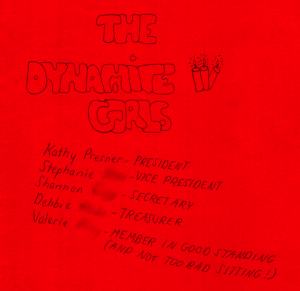 THE
DYNAMITE
GIRLS
Kathy Presner - PRESIDENT
Stephanie - VICE PRESIDENT
Shannon - SECRETARY
Debbie - TREASURER
Valerie - MEMBER IN GOOD STANDING
(AND NOT TOO BAD SITTING!)